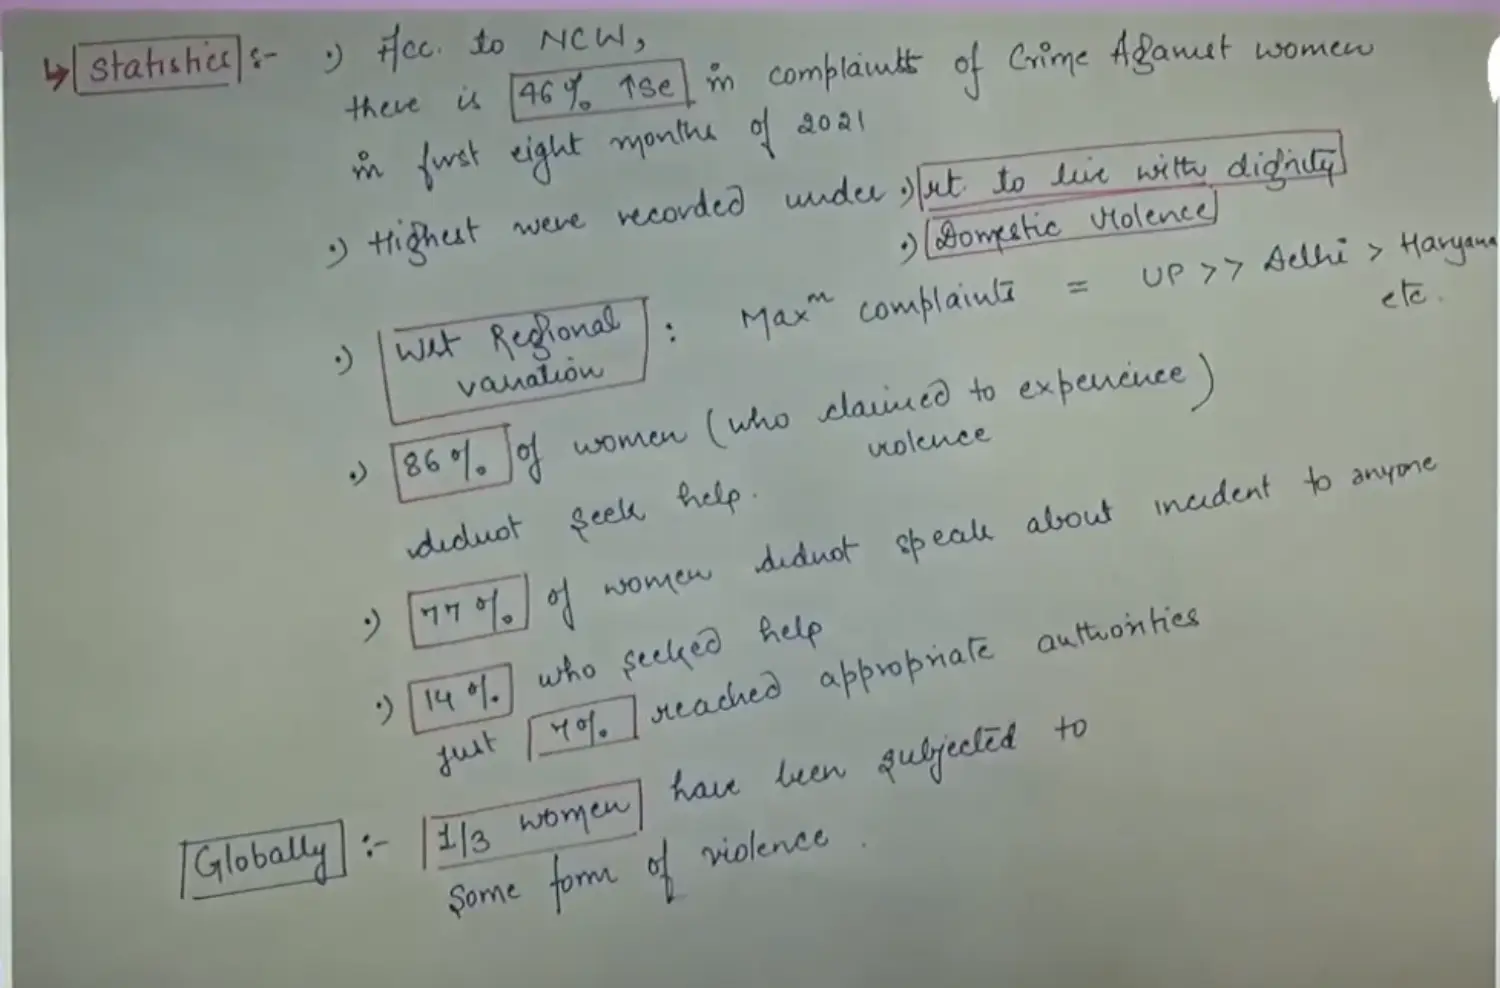 ↳ Statistics :- •) Acc. to NCW,
there is 46% ↑se in complaints of Crime Against women
in first eight months of 2021
•) Highest were recorded under •) rt. to live with dignity
•) Domestic Violence
•) Wrt Regional variation : Maxᵐ complaints = UP >> Delhi > Haryana etc.
•) 86% of women (who claimed to experience violence)
didnot seek help.
•) 77% of women didnot speak about incident to anyone
•) 14% who seeked help
just 7% reached appropriate authorities
Globally :- 1/3 women have been subjected to
some form of violence.